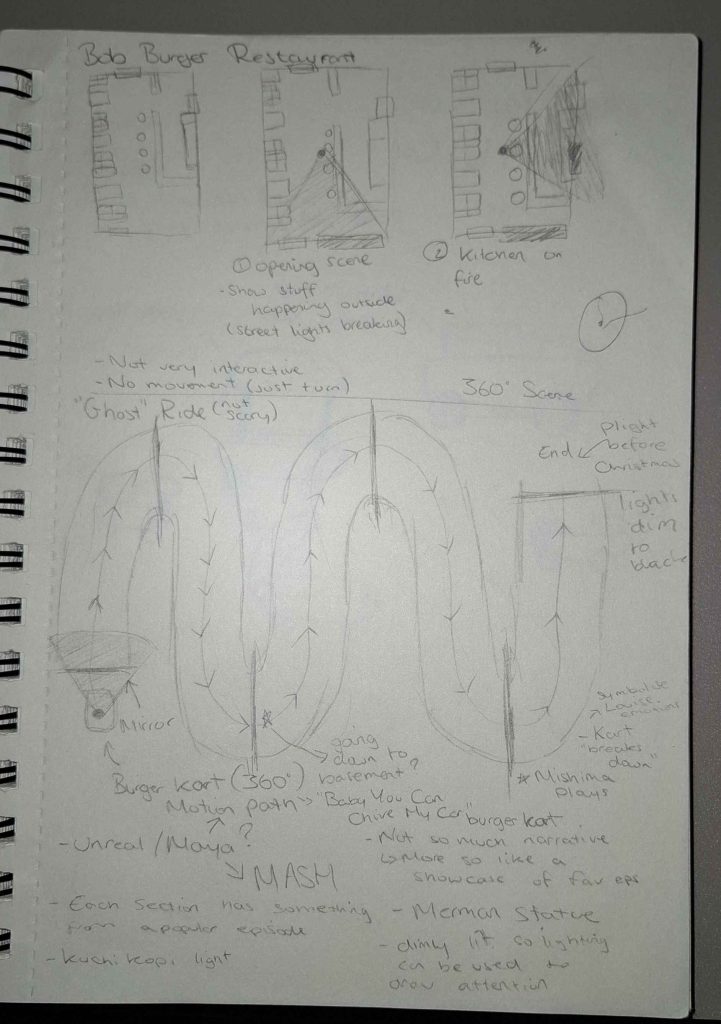 Bob Burger Restaurant
① opening scene
- Show stuff
happening outside
(street lights breaking)
② Kitchen on
fire
- Not very interactive
- No movement (just turn)
360° Scene
"Ghost" Ride (not scary)
End
plight
before
Christmas
lights
dim
to
black
Mirror
Burger kart (360°)
Motion path
going
down to
basement?
"Baby You Can
Chive My Car" burger kart
symbolise
Louise
emotions
- Kart
"breaks
down"
* Mishima
plays
- Unreal / Maya?
MASH
- Each section has something
from a popular episode
- Kuchi Kopi light
- Not so much narrative
↳ More so like a
showcase of fav eps
- Merman Statue
- dimly lit so lighting
can be used to
draw attention